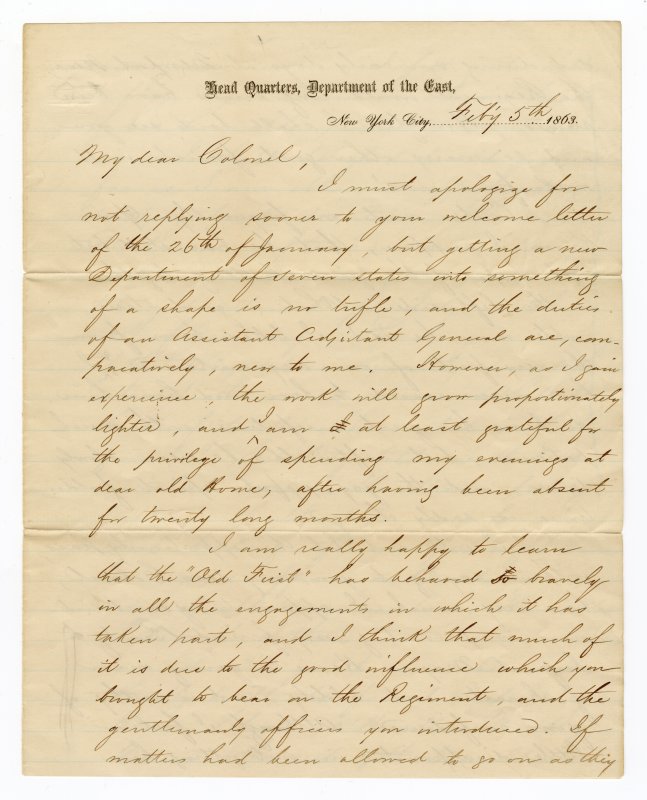 Head Quarters, Department of the East,
New York City, Feb'y 5th 1863.
My dear Colonel,
I must apologize for
not replying sooner to your welcome letter
of the 26th of January, but getting a new
Department of seven states into something
of a shape is no trifle, and the duties
of an Assistant Adjutant General are, com-
paratively, new to me. However, as I gain
experience, the work will grow proportionately
lighter, and I am at least grateful for
the privilege of spending my evenings at
dear old Home, after having been absent
for twenty long months.
I am really happy to learn
that the "Old First" has behaved so bravely
in all the engagements in which it has
taken part, and I think that much of
it is due to the good influence which you
brought to bear on the Regiment, and the
gentlemanly officers you introduced. If
matters had been allowed to go on as they